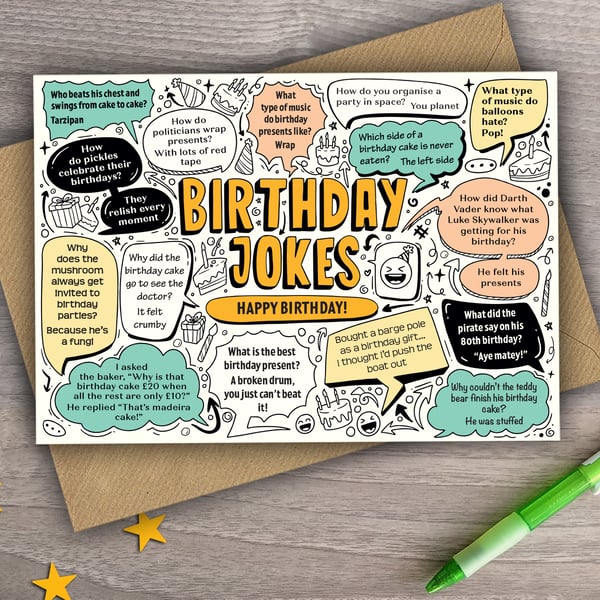 Who beats his chest and
swings from cake to cake?
Tarzipan
How do
politicians wrap
presents?
With lots of red
tape
What
type of music
do birthday
presents like?
Wrap
How do you organise a
party in space? You planet
What type
of music do
balloons
hate?
Pop!
Which side of a
birthday cake is never
eaten? The left side
How
do pickles
celebrate their
birthdays?
They
relish every
moment
BIRTHDAY
JOKES
HAPPY BIRTHDAY!
How did Darth
Vader know what
Luke Skywalker was
getting for his
birthday?
He felt his
presents
Why
does the
mushroom
always get
invited to
birthday
parties?
Because he's
a fungi
Why did the
birthday cake
go to see the
doctor?
It felt
crumby
What did the
pirate say on his
80th birthday?
"Aye matey!"
Bought a barge pole
as a birthday gift...
I thought I'd push the
boat out
What is the best
birthday present?
A broken drum,
you just can't beat
it!
I asked
the baker, "Why is that
birthday cake £20 when
all the rest are only £10?"
He replied "That's madeira
cake!"
Why couldn't the teddy
bear finish his birthday
cake?
He was stuffed